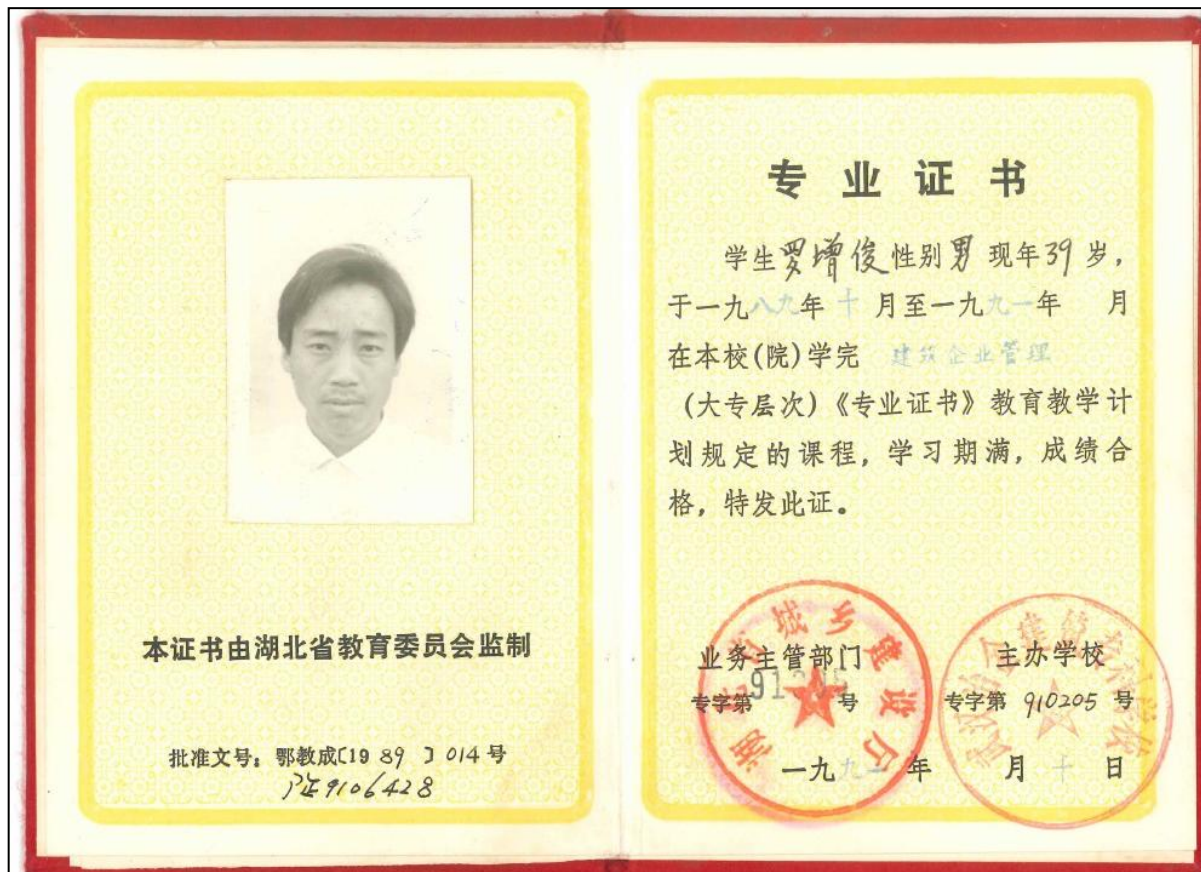 本证书由湖北省教育委员会监制
批准文号：鄂教成〔1989〕014号
9106428
专业证书
学生罗增俊性别男 现年39岁，
于一九八九年十月至一九九一年 月
在本校(院)学完 建筑企业管理
(大专层次)《专业证书》教育教学计
划规定的课程，学习期满，成绩合
格，特发此证。
湖北省城乡建设厅
业务主管部门
专字第 号
主办学校
专字第 910205 号
一九九一年 月十日